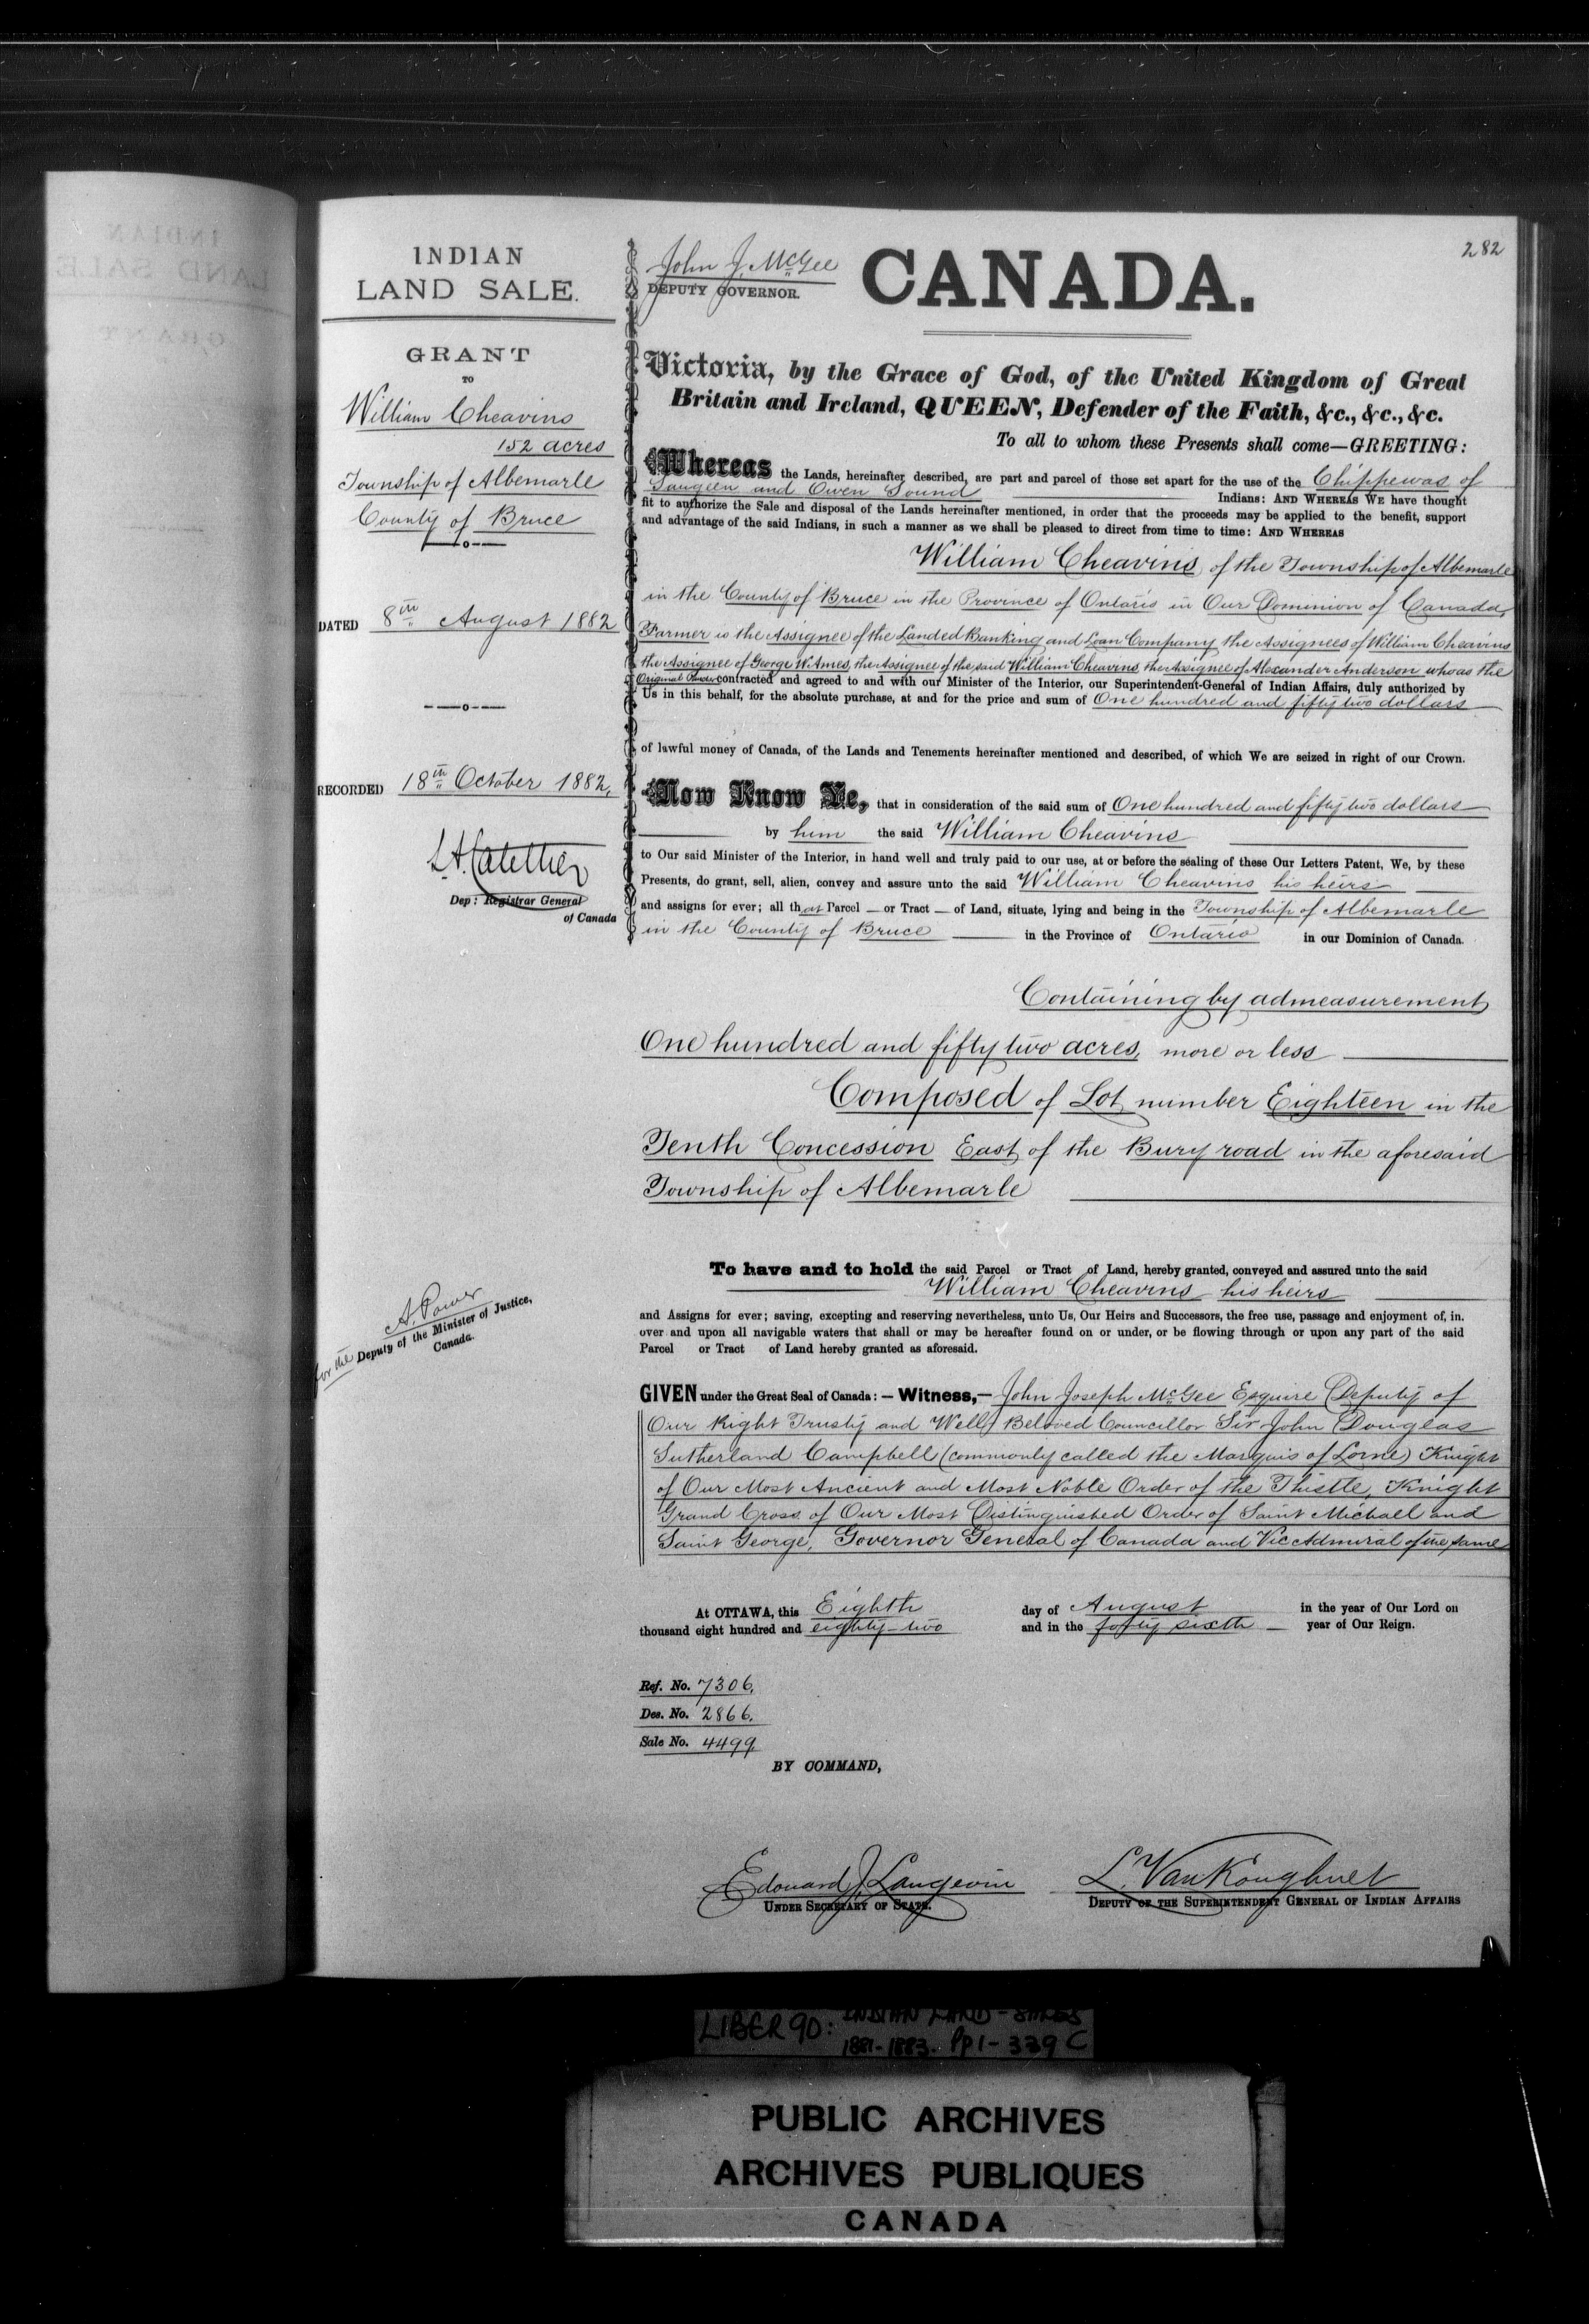 282
INDIAN
LAND SALE.
GRANT
TO
William Cheavins
152 acres
Township of Albemarle
County of Bruce
DATED 8th August 1882
RECORDED 18th October 1882.
Dep: Registrar General
of Canada
A. Power
for the Deputy of the Minister of Justice,
Canada.
John J. McGee
DEPUTY GOVERNOR.
CANADA.
Victoria, by the Grace of God, of the United Kingdom of Great
Britain and Ireland, QUEEN, Defender of the Faith, &c., &c., &c.
To all to whom these Presents shall come—GREETING:
Whereas the Lands, hereinafter described, are part and parcel of those set apart for the use of the Chippewas of
Saugeen and Owen Sound Indians: AND WHEREAS WE have thought
fit to authorize the Sale and disposal of the Lands hereinafter mentioned, in order that the proceeds may be applied to the benefit, support
and advantage of the said Indians, in such a manner as we shall be pleased to direct from time to time: AND WHEREAS
William Cheavins of the Township of Albemarle
in the County of Bruce in the Province of Ontario in Our Dominion of Canada,
Farmer is the Assignee of the Landed Banking and Loan Company the Assignees of William Cheavins
the Assignee of George W. Ames, the Assignee of the said William Cheavins the Assignee of Alexander Anderson who as the
Original contracted and agreed to and with our Minister of the Interior, our Superintendent-General of Indian Affairs, duly authorized by
Us in this behalf, for the absolute purchase, at and for the price and sum of One hundred and fifty two dollars
of lawful money of Canada, of the Lands and Tenements hereinafter mentioned and described, of which We are seized in right of our Crown.
Now Know Ye, that in consideration of the said sum of One hundred and fifty two dollars
by him the said William Cheavins
to Our said Minister of the Interior, in hand well and truly paid to our use, at or before the sealing of these Our Letters Patent, We, by these
Presents, do grant, sell, alien, convey and assure unto the said William Cheavins his heirs
and assigns for ever; all that Parcel — or Tract — of Land, situate, lying and being in the Township of Albemarle
in the County of Bruce in the Province of Ontario in our Dominion of Canada.
Containing by admeasurement
One hundred and fifty two acres, more or less
Composed of Lot number Eighteen in the
Tenth Concession East of the Bury road in the aforesaid
Township of Albemarle
To have and to hold the said Parcel or Tract of Land, hereby granted, conveyed and assured unto the said
William Cheavins his heirs
and Assigns for ever; saving, excepting and reserving nevertheless, unto Us, Our Heirs and Successors, the free use, passage and enjoyment of, in,
over and upon all navigable waters that shall or may be hereafter found on or under, or be flowing through or upon any part of the said
Parcel or Tract of Land hereby granted as aforesaid.
GIVEN under the Great Seal of Canada:— Witness,— John Joseph McGee Esquire Deputy of
Our Right Trusty and Well Beloved Councillor Sir John Douglas
Sutherland Campbell (commonly called the Marquis of Lorne) Knight
of Our Most Ancient and Most Noble Order of the Thistle, Knight
Grand Cross of Our Most Distinguished Order of Saint Michael and
Saint George, Governor General of Canada and Vice Admiral of the same
At OTTAWA, this Eighth day of August in the year of Our Lord on
thousand eight hundred and eighty-two and in the forty sixth year of Our Reign.
Ref. No. 7306.
Des. No. 2866.
Sale No. 4499
BY COMMAND,
Edouard J. Langevin
UNDER SECRETARY OF STATE.
L. VanKoughnet
DEPUTY OF THE SUPERINTENDENT GENERAL OF INDIAN AFFAIRS
LIBER 90: INDIAN LAND - SALES
1881-1883. Pp 1-339 C
PUBLIC ARCHIVES
ARCHIVES PUBLIQUES
CANADA